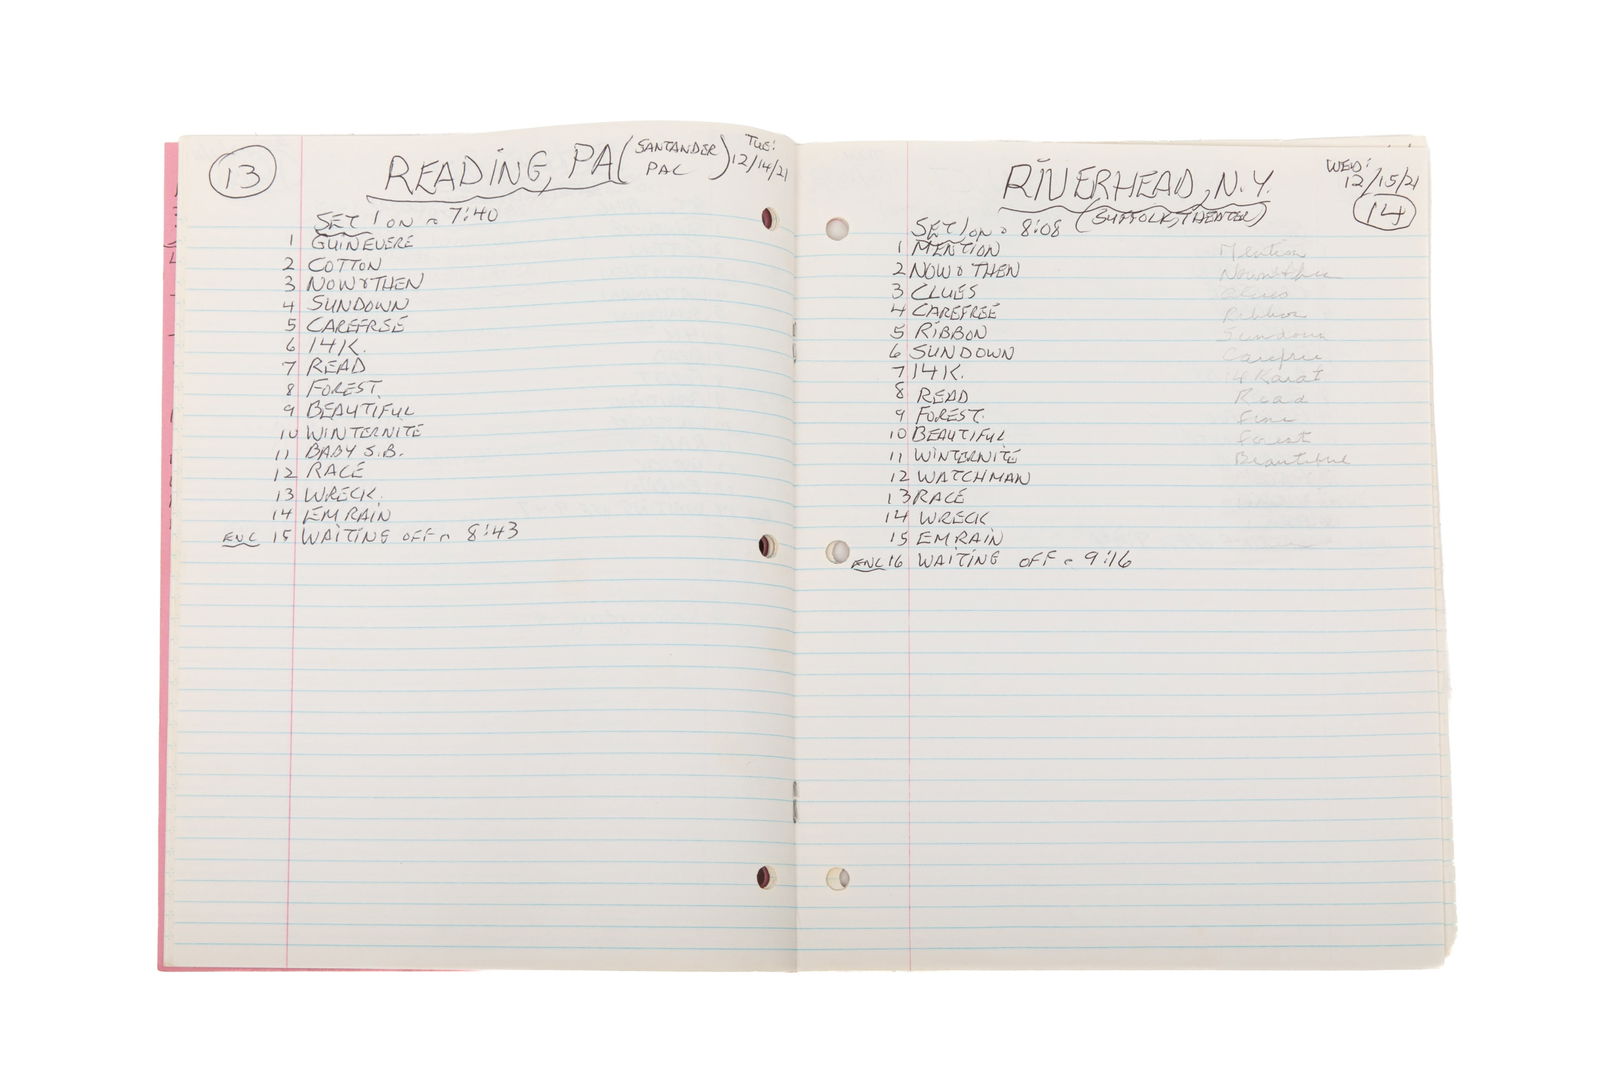 13
READING, PA (SANTANDER PAC)
TUE: 12/14/21
SET 1 ON ~ 7:40
1 GUINEVERE
2 COTTON
3 NOW & THEN
4 SUNDOWN
5 CAREFREE
6 14K.
7 READ
8 FOREST.
9 BEAUTIFUL
10 WINTERNITE
11 BABY S.B.
12 RACE
13 WRECK.
14 EM RAIN
ENC 15 WAITING OFF ~ 8:43
RIVERHEAD, N.Y.
WED: 12/15/21
14
(SUFFOLK, THEATER)
SET 1 ON ~ 8:08
1 MENTION
2 NOW & THEN
3 CLUES
4 CAREFREE
5 RIBBON
6 SUNDOWN
7 14K.
8 READ
9 FOREST.
10 BEAUTIFUL
11 WINTERNITE
12 WATCHMAN
13 RACE
14 WRECK
15 EM RAIN
ENC 16 WAITING OFF ~ 9:16
Mention
Now & then
Clues
Ribbon
Sundown
Carefree
14 Karat
Read
Fine
Forest
Beautiful